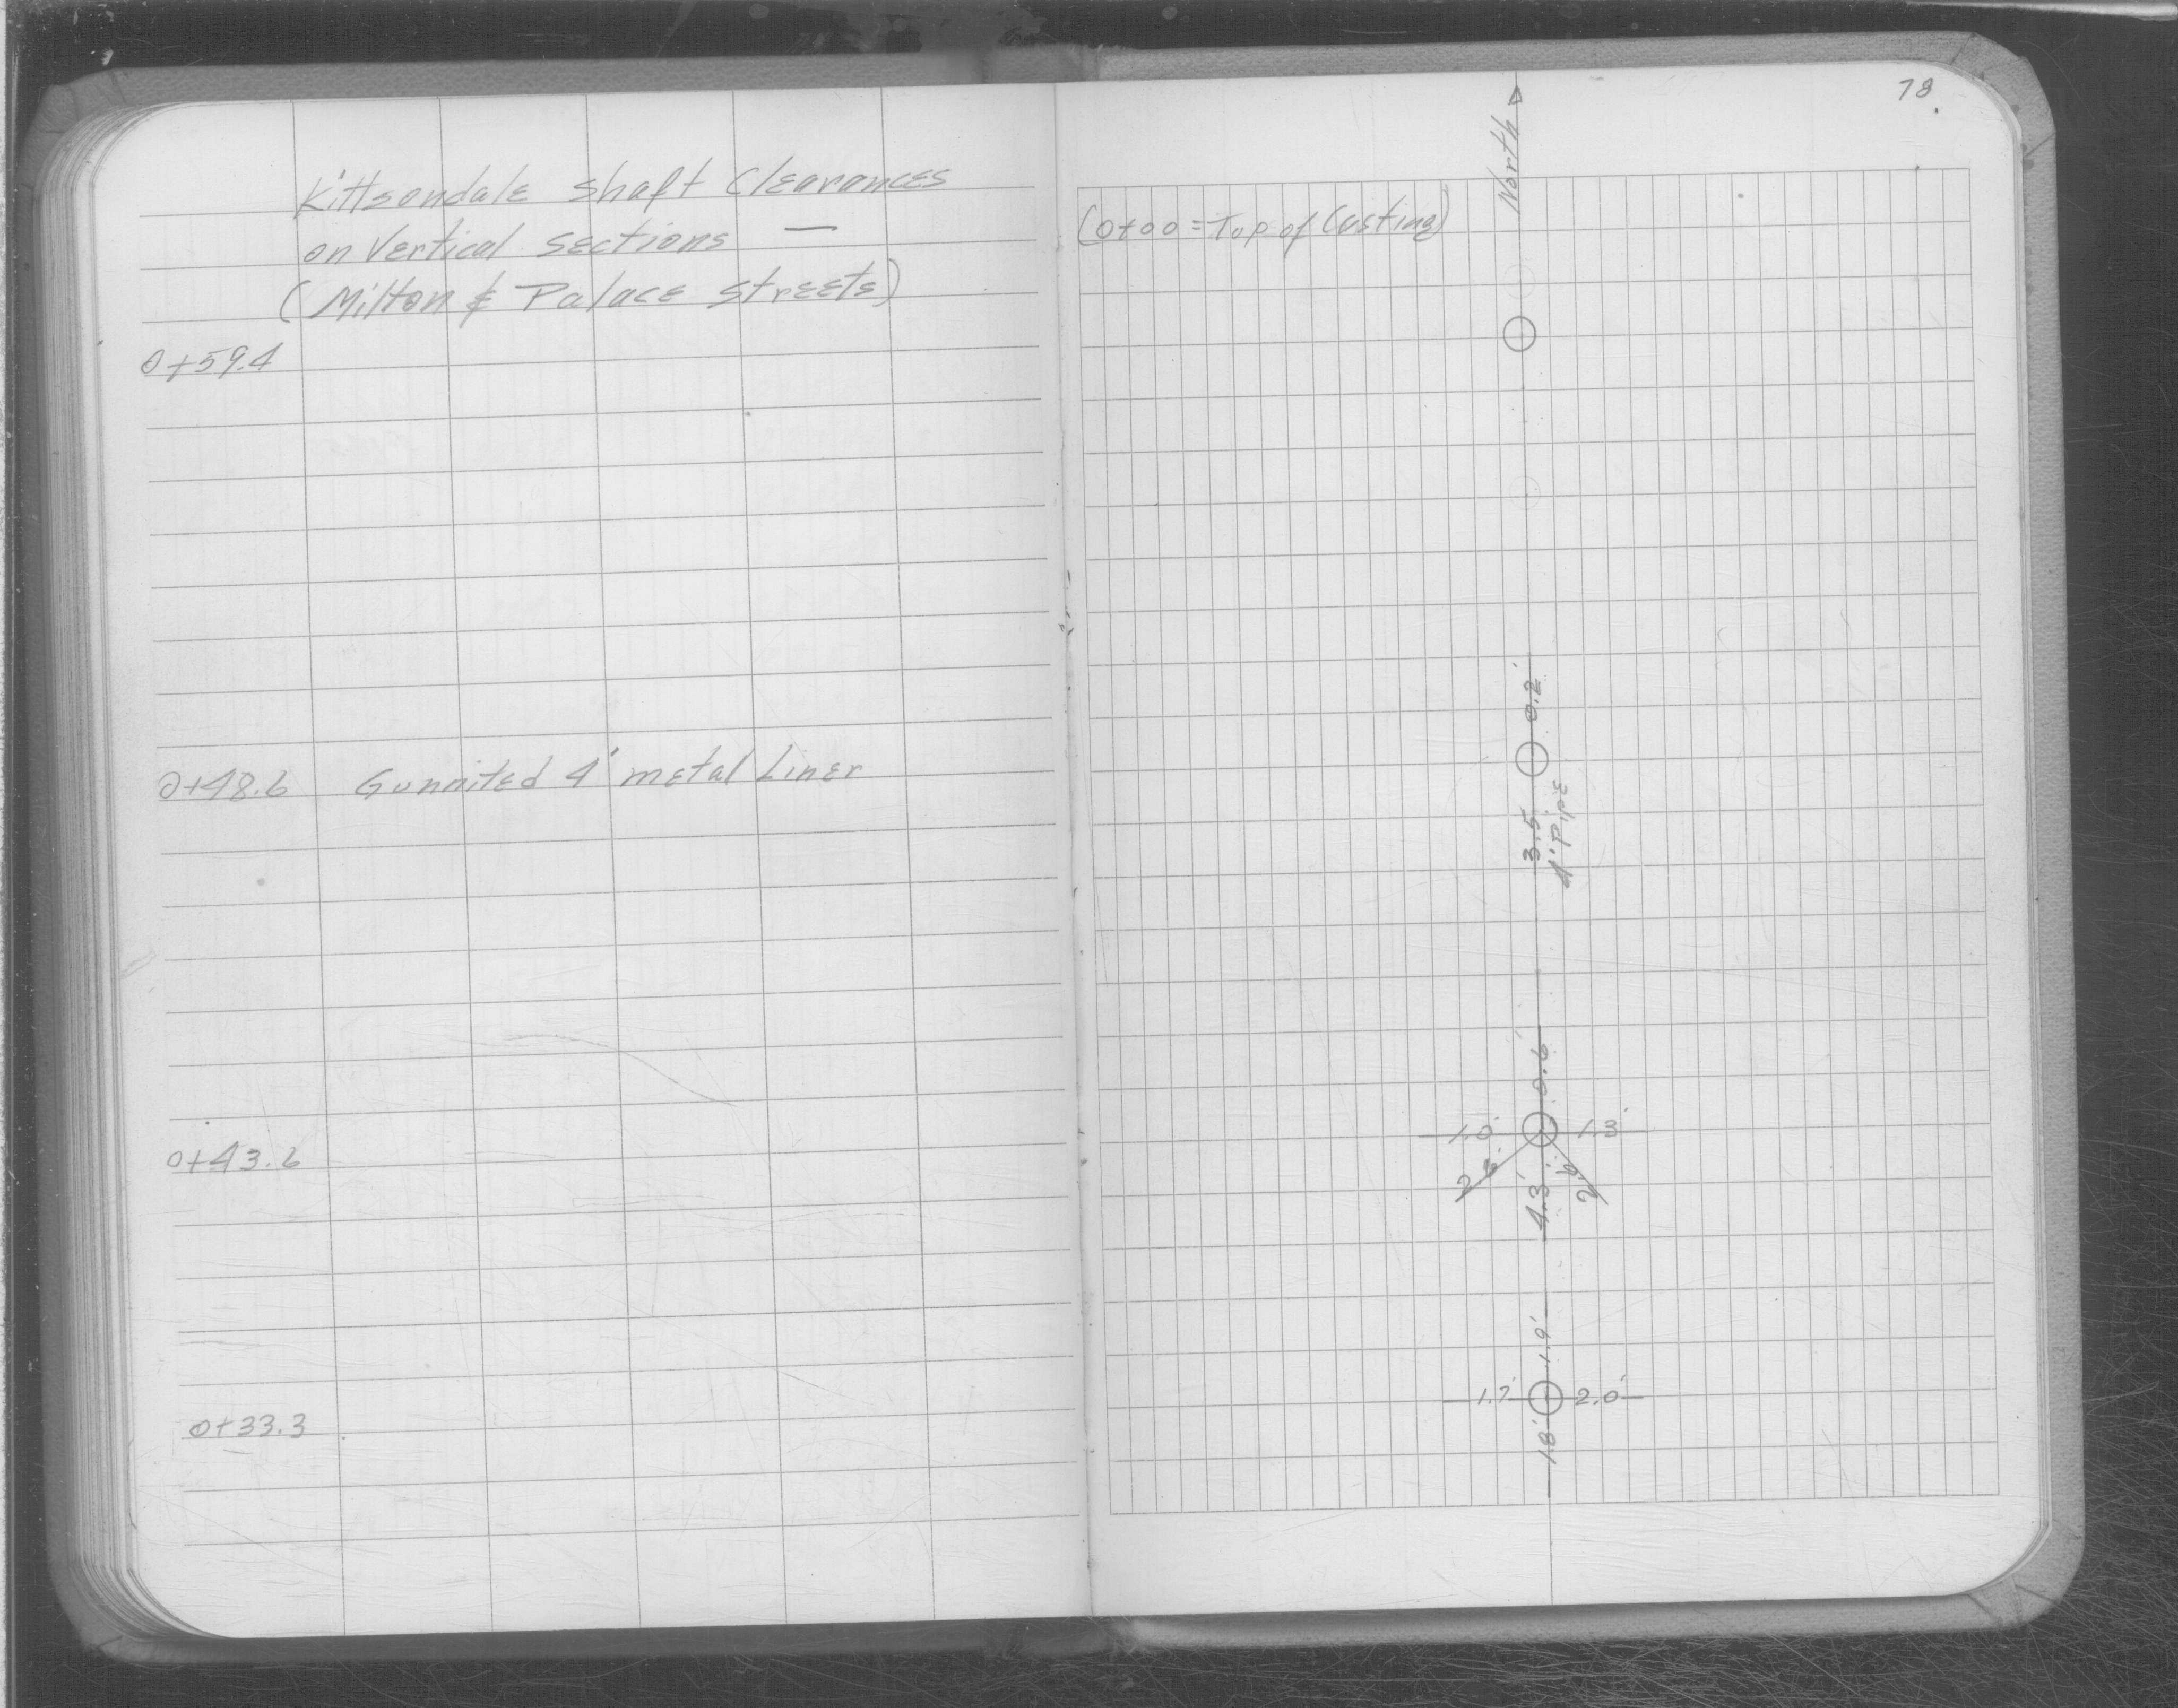 Kittsondale Shaft Clearances
on Vertical Sections —
(Milton & Palace Streets)
0+59.4
0+48.6 Gunnited 4' metal Liner
0+43.6
0+33.3
78
North
(0+00 = Top of Casting)
0.2'
3.5
4' Pipe
0.6'
1.0' 1.3'
4.3'
1.9'
1.7' 2.0'
1.8'